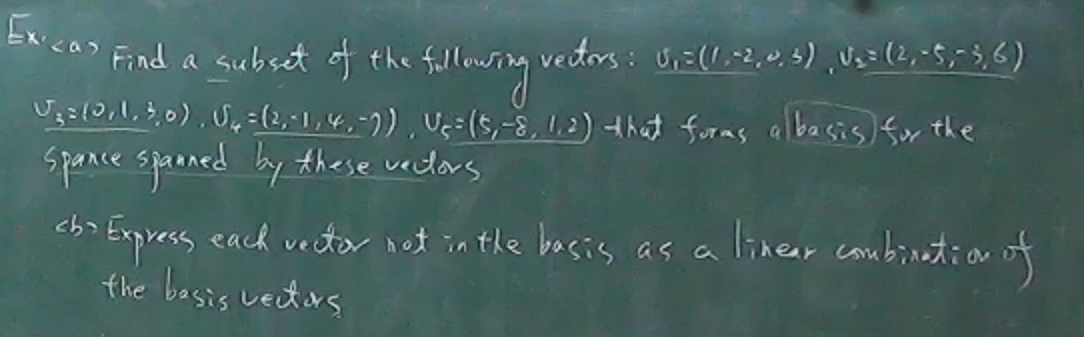 Ex. <a> Find a subset of the following vectors: v₁=(1,-2,0,3), v₂=(2,-5,-3,6)
v₃=(0,1,3,0), v₄=(2,-1,4,-7), v₅=(5,-8,1,2) that forms a basis for the
spance spanned by these vectors
<b> Express each vector not in the basis as a linear combination of
the basis vectors